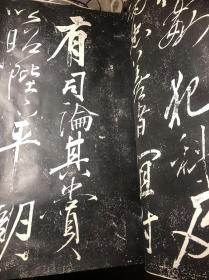 犯科及
忠善者宜付
有司論其刑賞
以昭陛下平明